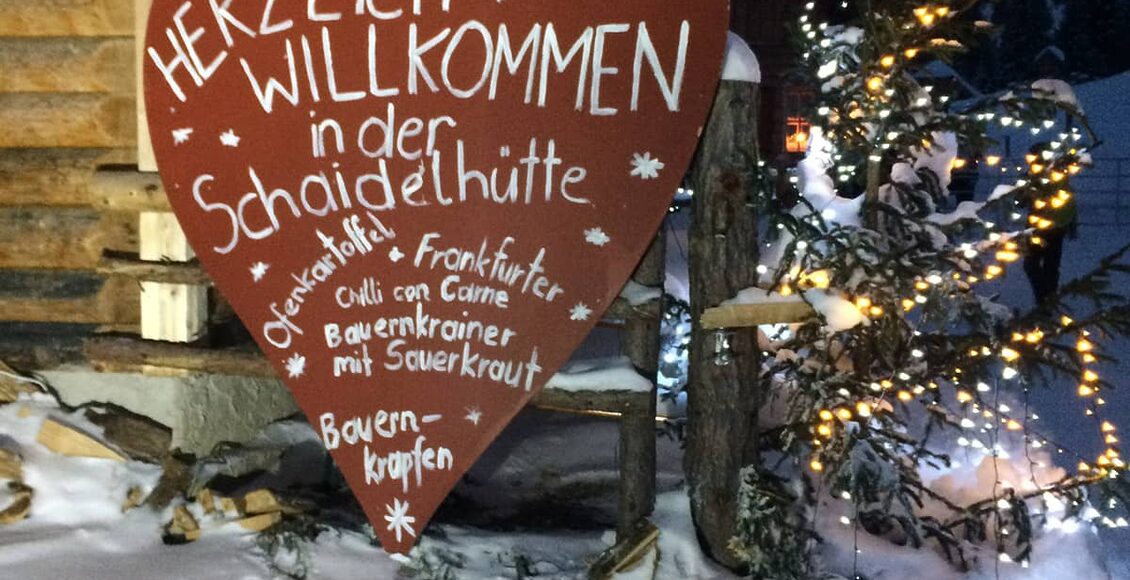 HERZLICH
WILLKOMMEN
in der
Schaidelhütte
Ofenkartoffel
+ Frankfurter
Chilli con Carne
Bauernkrainer
mit Sauerkraut
Bauern-
krapfen